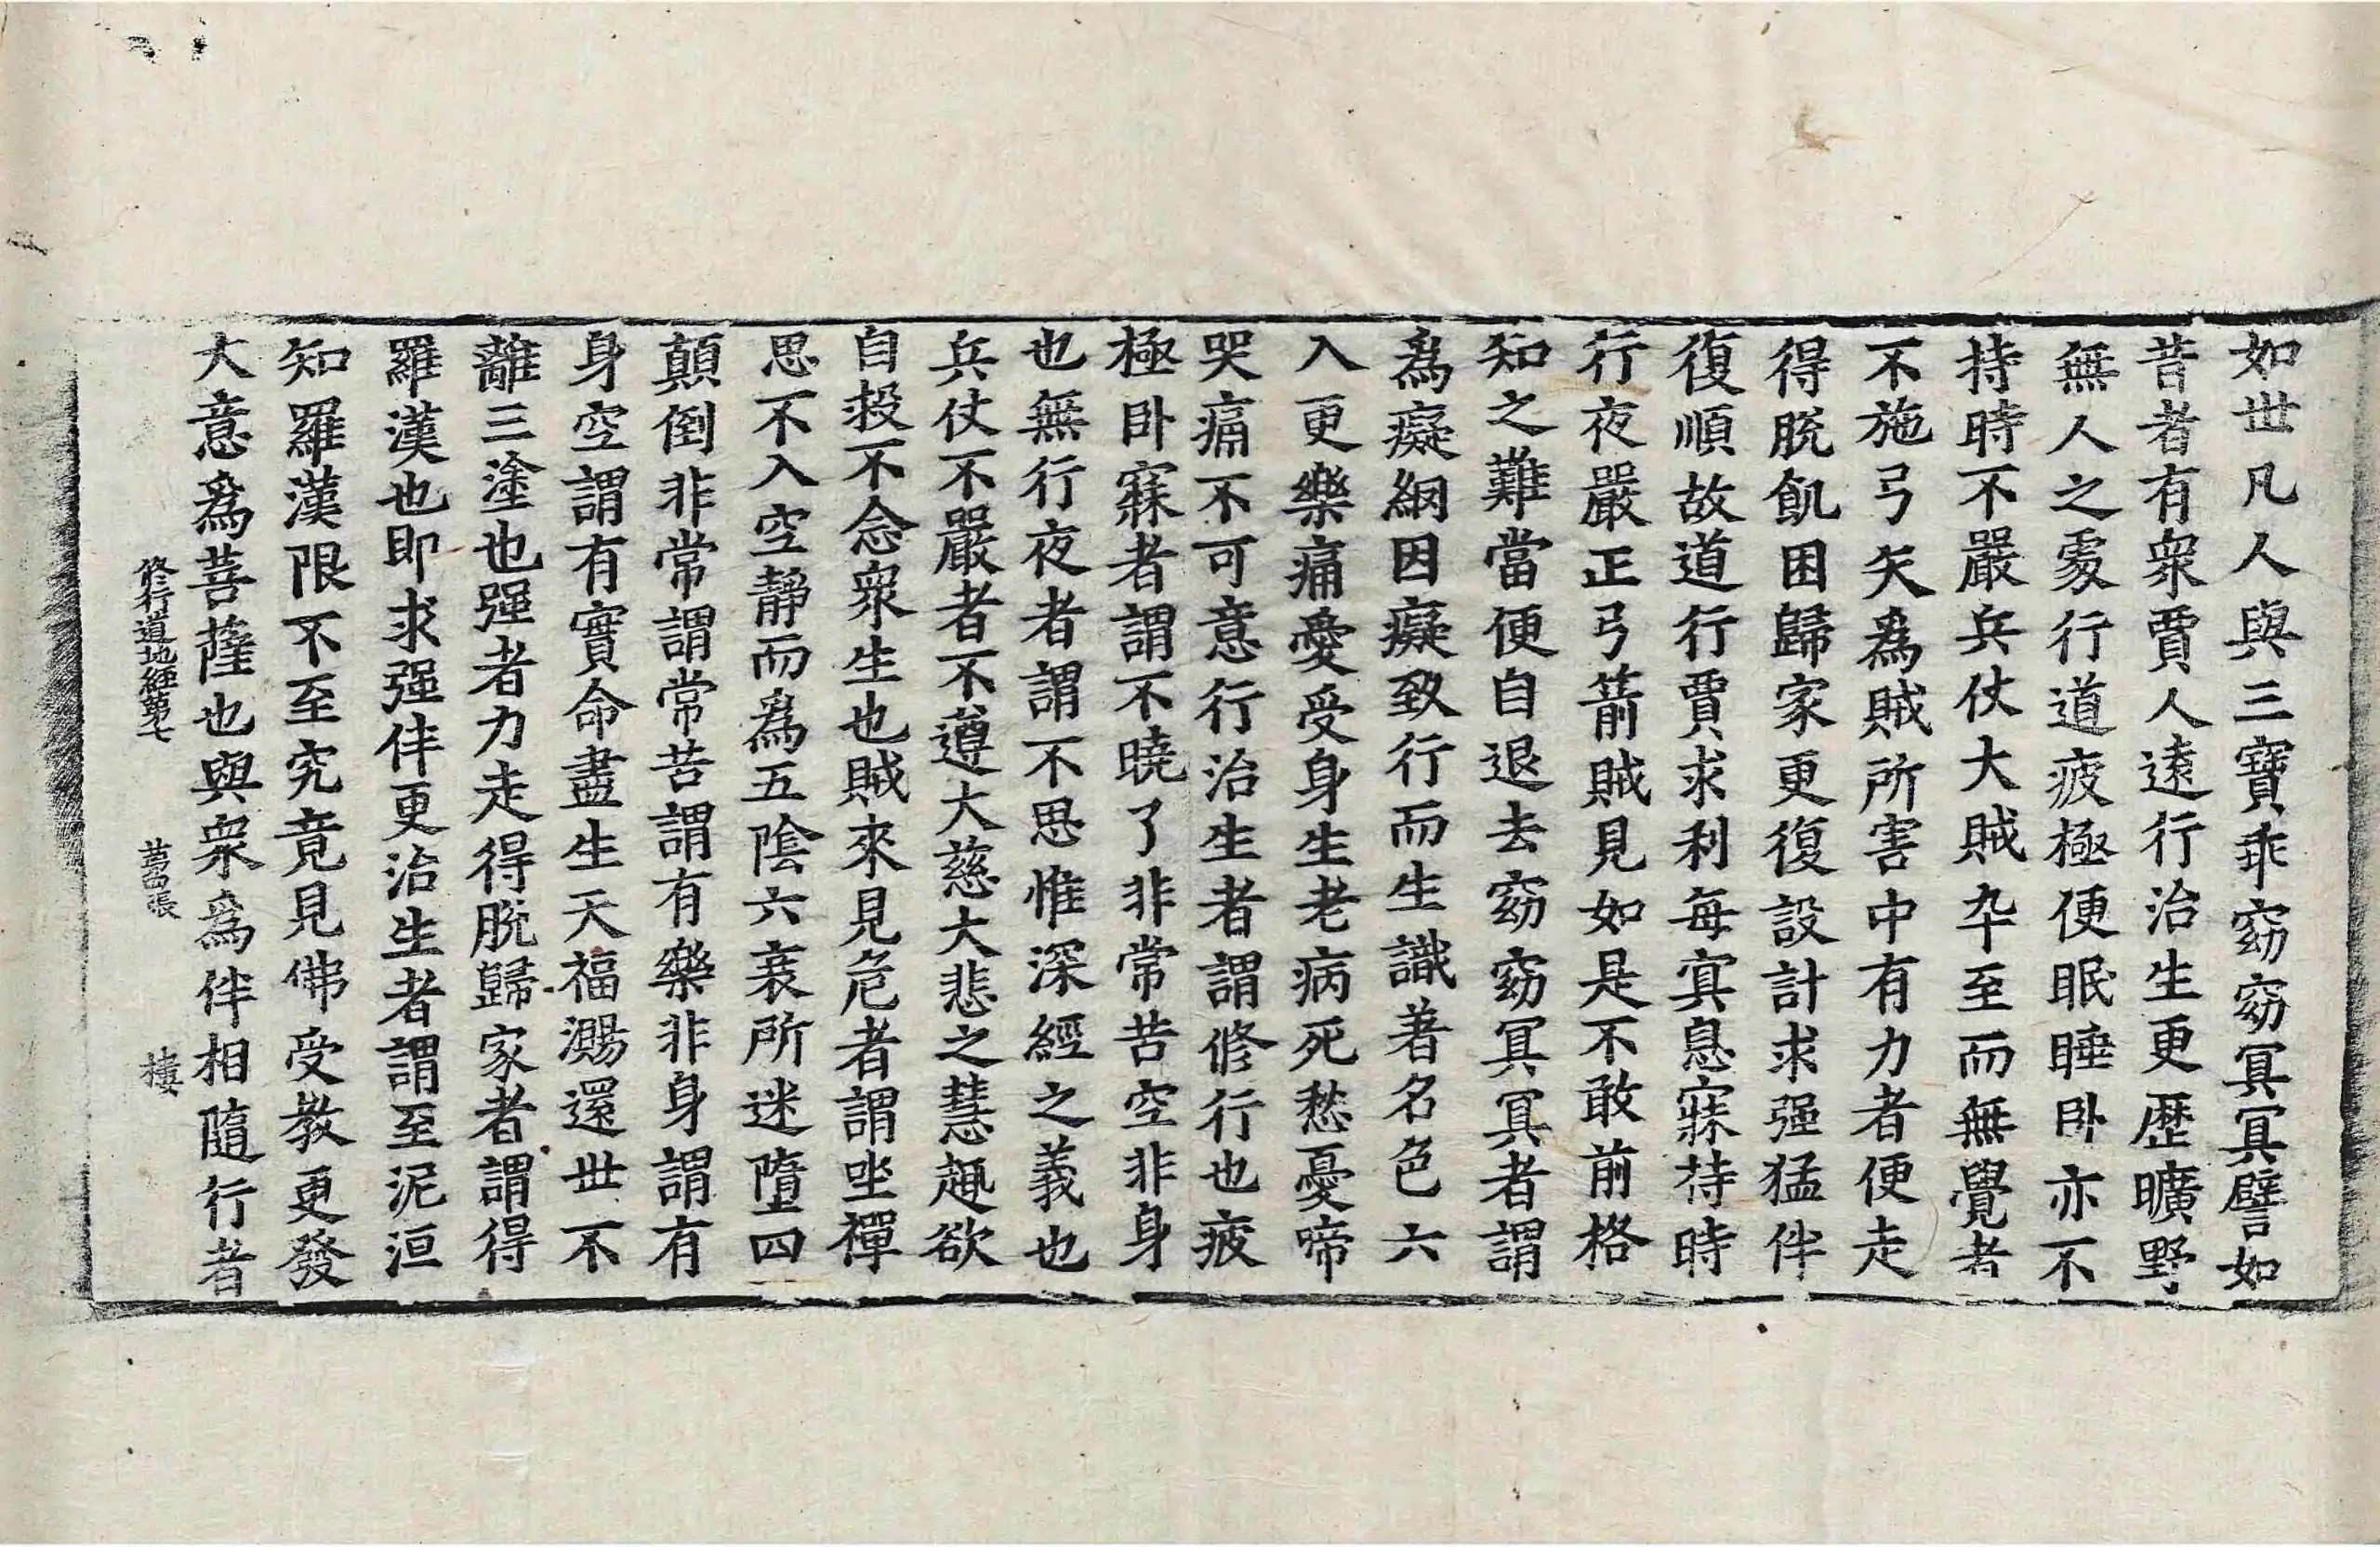 如世凡人與三寶乖窈窈冥冥譬如
昔者有衆賈人遠行治生更歷曠野
無人之處行道疲極便眠睡卧亦不
持時不嚴兵仗大賊卒至而無覺者
不施弓矢爲賊所害中有力者便走
得脫飢困歸家更復設計求强猛伴
復順故道行賈求利每寘息寐持時
行夜嚴正弓箭賊見如是不敢前格
知之難當便自退去窈窈冥冥者謂
爲癡網因癡致行而生識著名色六
入更樂痛愛受身生老病死愁憂啼
哭痛不可意行治生者謂修行也疲
極卧寐者謂不曉了非常苦空非身
也無行夜者謂不思惟深經之義也
兵仗不嚴者不遵大慈大悲之慧趣欲
自救不念衆生也賊來見危者謂坐禪
思不入空靜而爲五陰六衰所迷墮四
顛倒非常謂常苦謂有樂非身謂有
身空謂有實命盡生天福㵧還世不
離三塗也强者力走得脫歸家者謂得
羅漢也即求强伴更治生者謂至泥洹
知羅漢限不至究竟見佛受教更發
大意爲菩薩也與衆爲伴相隨行者
修行道地經第七 張 樓